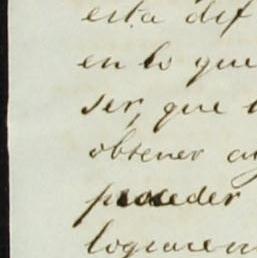 esta dif
en lo que
ser, que
obtener
proceder